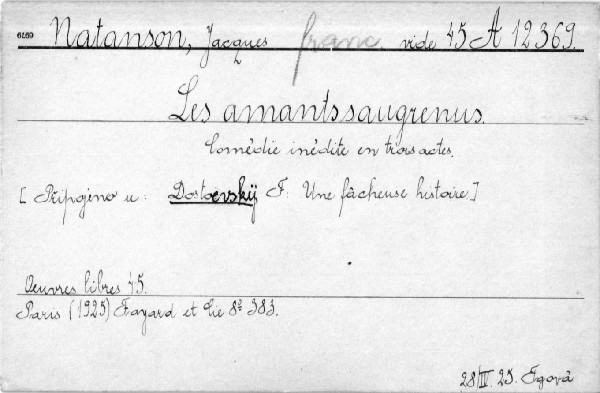 6269 Natanson, Jacques franc. vide 45 A 12369.
Les amants saugrenus.
Comédie inédite en trois actes.
[ Připojeno u: Dostoevskij F: Une fâcheuse histoire ]
Oeuvres libres 45.
Paris (1925) Fayard et Cie 8° 383.
28/III. 25. Egová